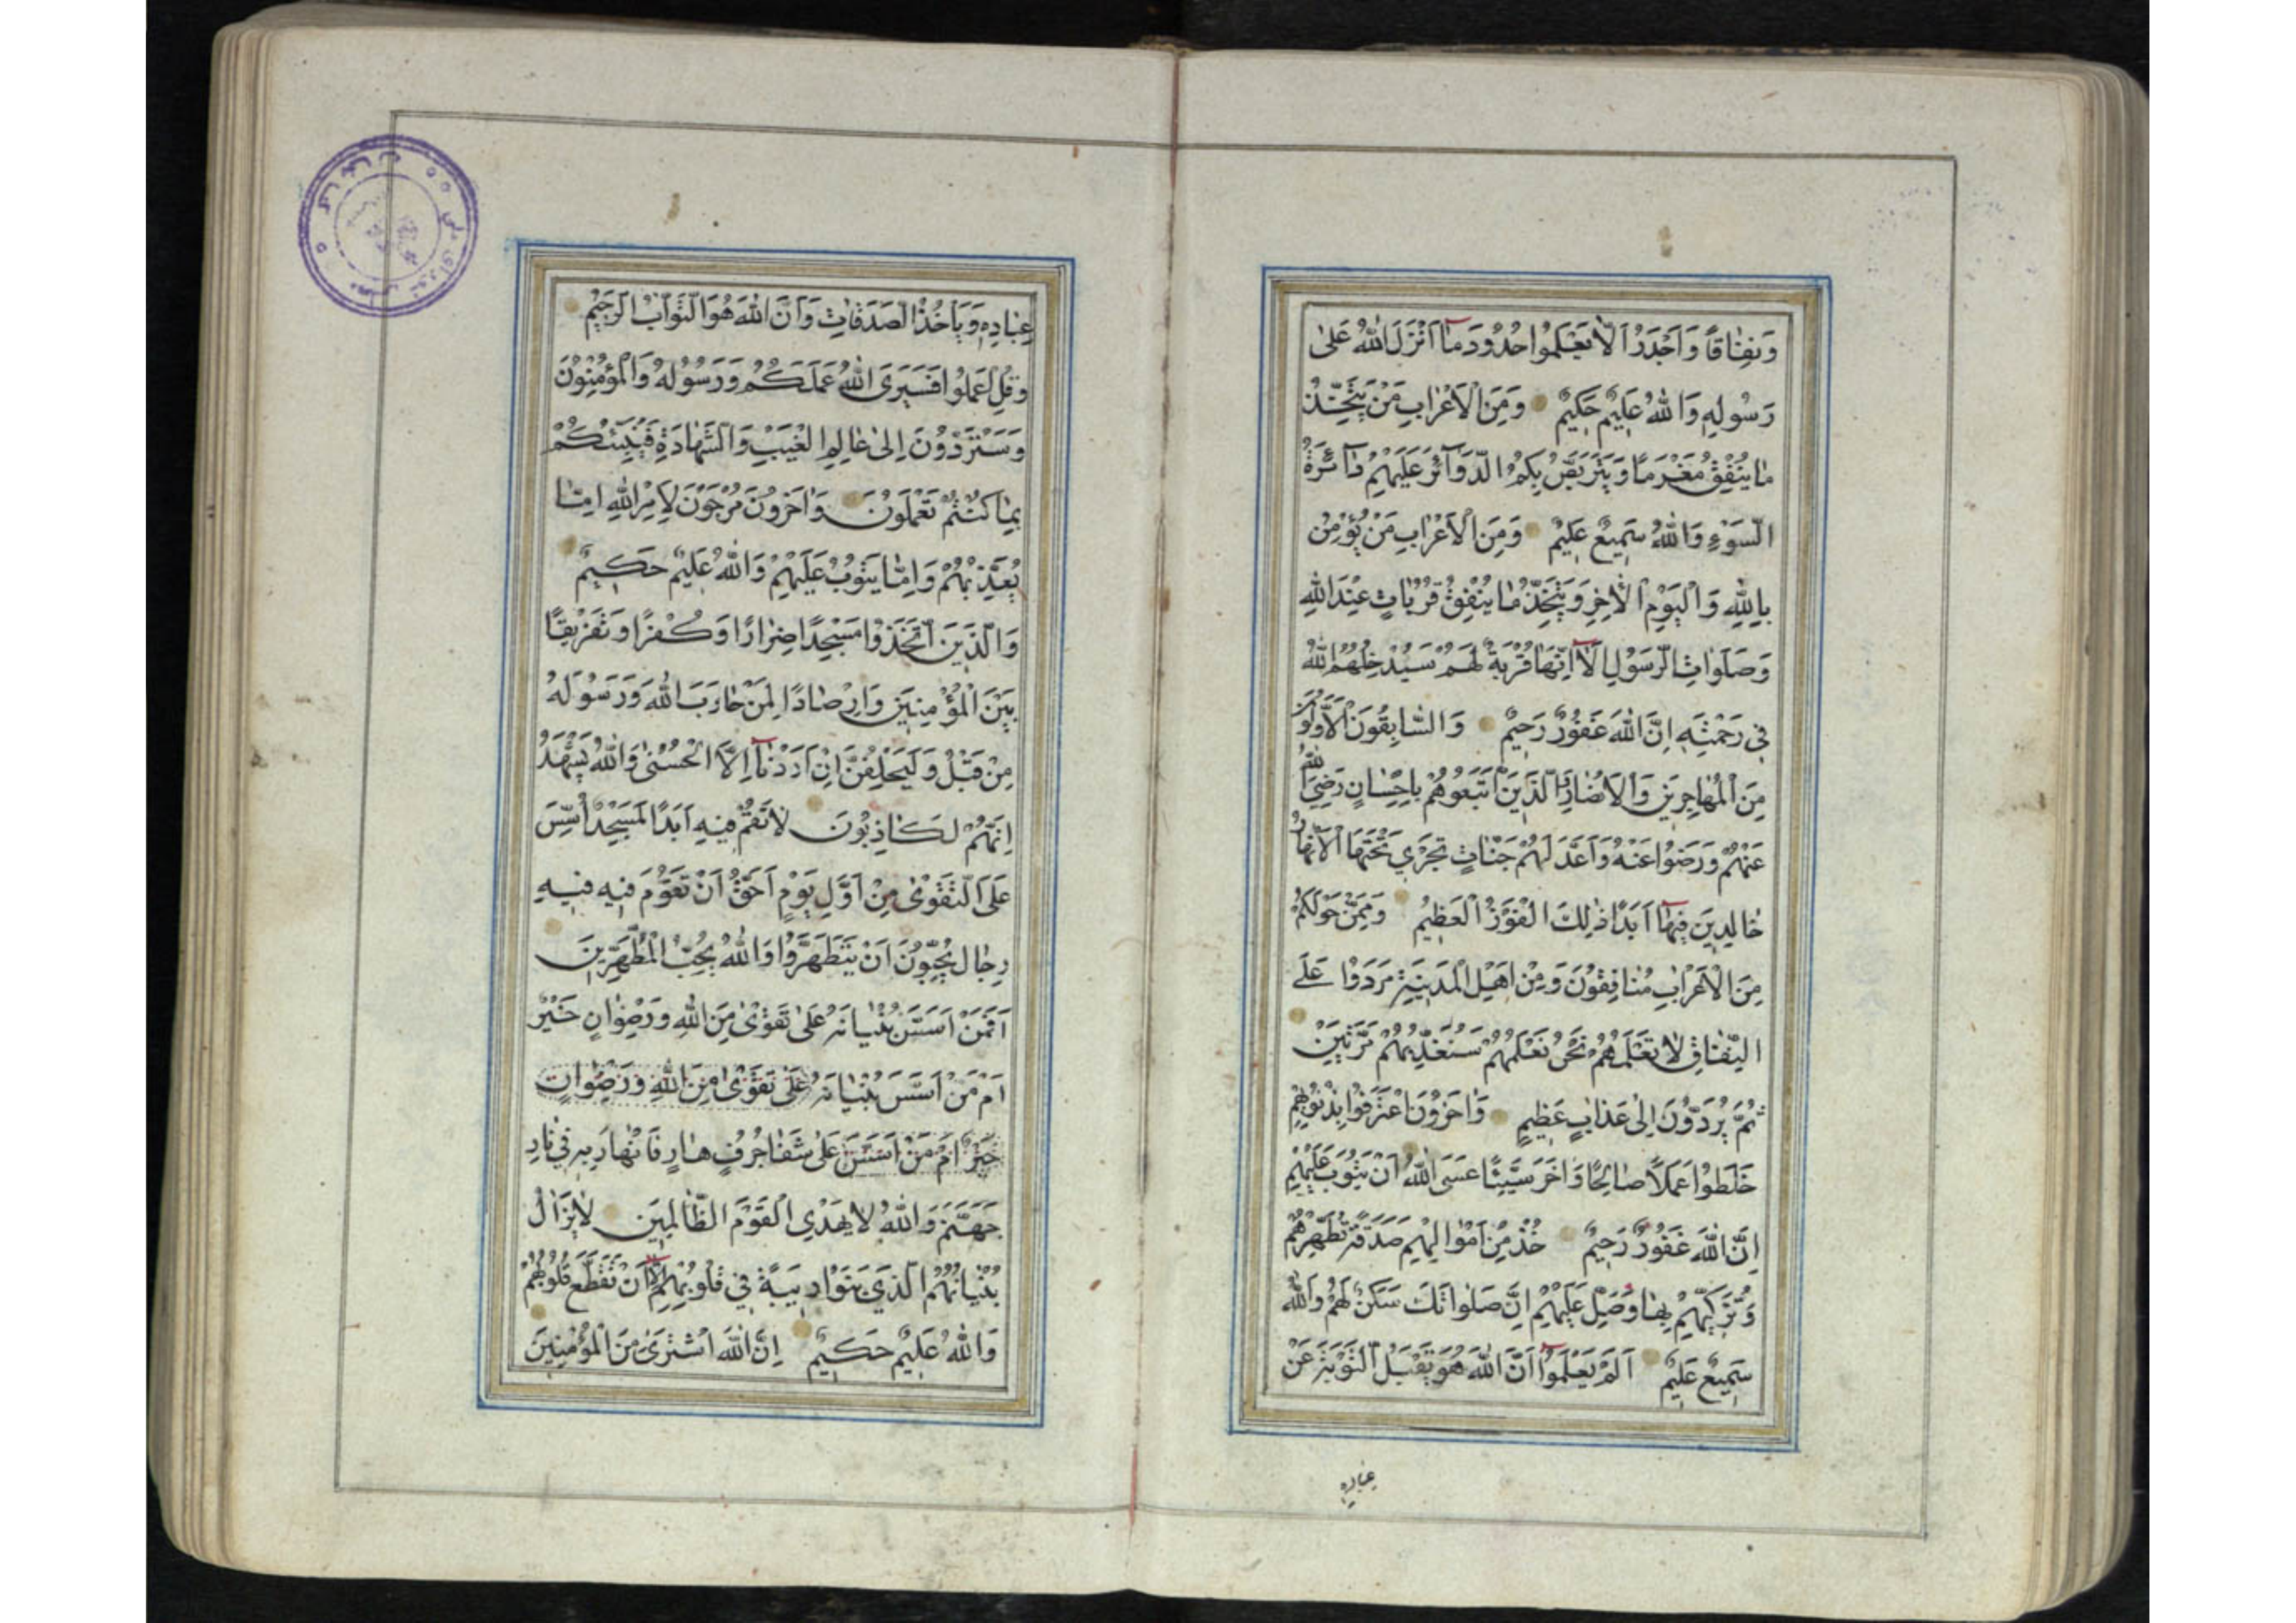 وَنِفَاقًا وَاَجْدَرُ اَلَّا يَعْلَمُوا حُدُودَ مَا اَنْزَلَ اللهُ عَلٰى
رَسُولِهِ وَاللهُ عَلِيمٌ حَكِيمٌ وَمِنَ الْاَعْرَابِ مَنْ يَتَّخِذُ
مَا يُنْفِقُ مَغْرَمًا وَيَتَرَبَّصُ بِكُمُ الدَّوَآئِرَ عَلَيْهِمْ دَآئِرَةُ
السَّوْءِ وَاللهُ سَمِيعٌ عَلِيمٌ وَمِنَ الْاَعْرَابِ مَنْ يُؤْمِنُ
بِاللهِ وَالْيَوْمِ الْاٰخِرِ وَيَتَّخِذُ مَا يُنْفِقُ قُرُبَاتٍ عِنْدَ اللهِ
وَصَلَوَاتِ الرَّسُولِ اَلَا اِنَّهَا قُرْبَةٌ لَهُمْ سَيُدْخِلُهُمُ اللهُ
فِي رَحْمَتِهِ اِنَّ اللهَ غَفُورٌ رَحِيمٌ وَالسَّابِقُونَ الْاَوَّلُونَ
مِنَ الْمُهَاجِرِينَ وَالْاَنْصَارِ الَّذِينَ اتَّبَعُوهُمْ بِاِحْسَانٍ رَضِيَ اللهُ
عَنْهُمْ وَرَضُوا عَنْهُ وَاَعَدَّ لَهُمْ جَنَّاتٍ تَجْرِي تَحْتَهَا الْاَنْهَارُ
خَالِدِينَ فِيهَا اَبَدًا ذٰلِكَ الْفَوْزُ الْعَظِيمُ وَمِمَّنْ حَوْلَكُمْ
مِنَ الْاَعْرَابِ مُنَافِقُونَ وَمِنْ اَهْلِ الْمَدِينَةِ مَرَدُوا عَلَى
النِّفَاقِ لَا تَعْلَمُهُمْ نَحْنُ نَعْلَمُهُمْ سَنُعَذِّبُهُمْ مَرَّتَيْنِ
ثُمَّ يُرَدُّونَ اِلٰى عَذَابٍ عَظِيمٍ وَاٰخَرُونَ اعْتَرَفُوا بِذُنُوبِهِمْ
خَلَطُوا عَمَلًا صَالِحًا وَاٰخَرَ سَيِّئًا عَسَى اللهُ اَنْ يَتُوبَ عَلَيْهِمْ
اِنَّ اللهَ غَفُورٌ رَحِيمٌ خُذْ مِنْ اَمْوَالِهِمْ صَدَقَةً تُطَهِّرُهُمْ
وَتُزَكِّيهِمْ بِهَا وَصَلِّ عَلَيْهِمْ اِنَّ صَلَوَاتَكَ سَكَنٌ لَهُمْ وَاللهُ
سَمِيعٌ عَلِيمٌ اَلَمْ يَعْلَمُوا اَنَّ اللهَ هُوَ يَقْبَلُ التَّوْبَةَ عَنْ
عِبَادِهِ
عِبَادِهِ وَيَأْخُذُ الصَّدَقَاتِ وَاَنَّ اللهَ هُوَ التَّوَّابُ الرَّحِيمُ
وَقُلِ اعْمَلُوا فَسَيَرَى اللهُ عَمَلَكُمْ وَرَسُولُهُ وَالْمُؤْمِنُونَ
وَسَتُرَدُّونَ اِلٰى عَالِمِ الْغَيْبِ وَالشَّهَادَةِ فَيُنَبِّئُكُمْ
بِمَا كُنْتُمْ تَعْمَلُونَ وَاٰخَرُونَ مُرْجَوْنَ لِاَمْرِ اللهِ اِمَّا
يُعَذِّبُهُمْ وَاِمَّا يَتُوبُ عَلَيْهِمْ وَاللهُ عَلِيمٌ حَكِيمٌ
وَالَّذِينَ اتَّخَذُوا مَسْجِدًا ضِرَارًا وَكُفْرًا وَتَفْرِيقًا
بَيْنَ الْمُؤْمِنِينَ وَاِرْصَادًا لِمَنْ حَارَبَ اللهَ وَرَسُولَهُ
مِنْ قَبْلُ وَلَيَحْلِفُنَّ اِنْ اَرَدْنَا اِلَّا الْحُسْنٰى وَاللهُ يَشْهَدُ
اِنَّهُمْ لَكَاذِبُونَ لَا تَقُمْ فِيهِ اَبَدًا لَمَسْجِدٌ اُسِّسَ
عَلَى التَّقْوٰى مِنْ اَوَّلِ يَوْمٍ اَحَقُّ اَنْ تَقُومَ فِيهِ فِيهِ
رِجَالٌ يُحِبُّونَ اَنْ يَتَطَهَّرُوا وَاللهُ يُحِبُّ الْمُطَّهِّرِينَ
اَفَمَنْ اَسَّسَ بُنْيَانَهُ عَلٰى تَقْوٰى مِنَ اللهِ وَرِضْوَانٍ خَيْرٌ
اَمْ مَنْ اَسَّسَ بُنْيَانَهُ عَلٰى تَقْوٰى مِنَ اللهِ وَرِضْوَانٍ
خَيْرٌ اَمْ مَنْ اَسَّسَ عَلٰى شَفَا جُرُفٍ هَارٍ فَانْهَارَ بِهِ فِي نَارِ
جَهَنَّمَ وَاللهُ لَا يَهْدِي الْقَوْمَ الظَّالِمِينَ لَا يَزَالُ
بُنْيَانُهُمُ الَّذِي بَنَوْا رِيبَةً فِي قُلُوبِهِمْ اِلَّا اَنْ تَقَطَّعَ قُلُوبُهُمْ
وَاللهُ عَلِيمٌ حَكِيمٌ اِنَّ اللهَ اشْتَرٰى مِنَ الْمُؤْمِنِينَ